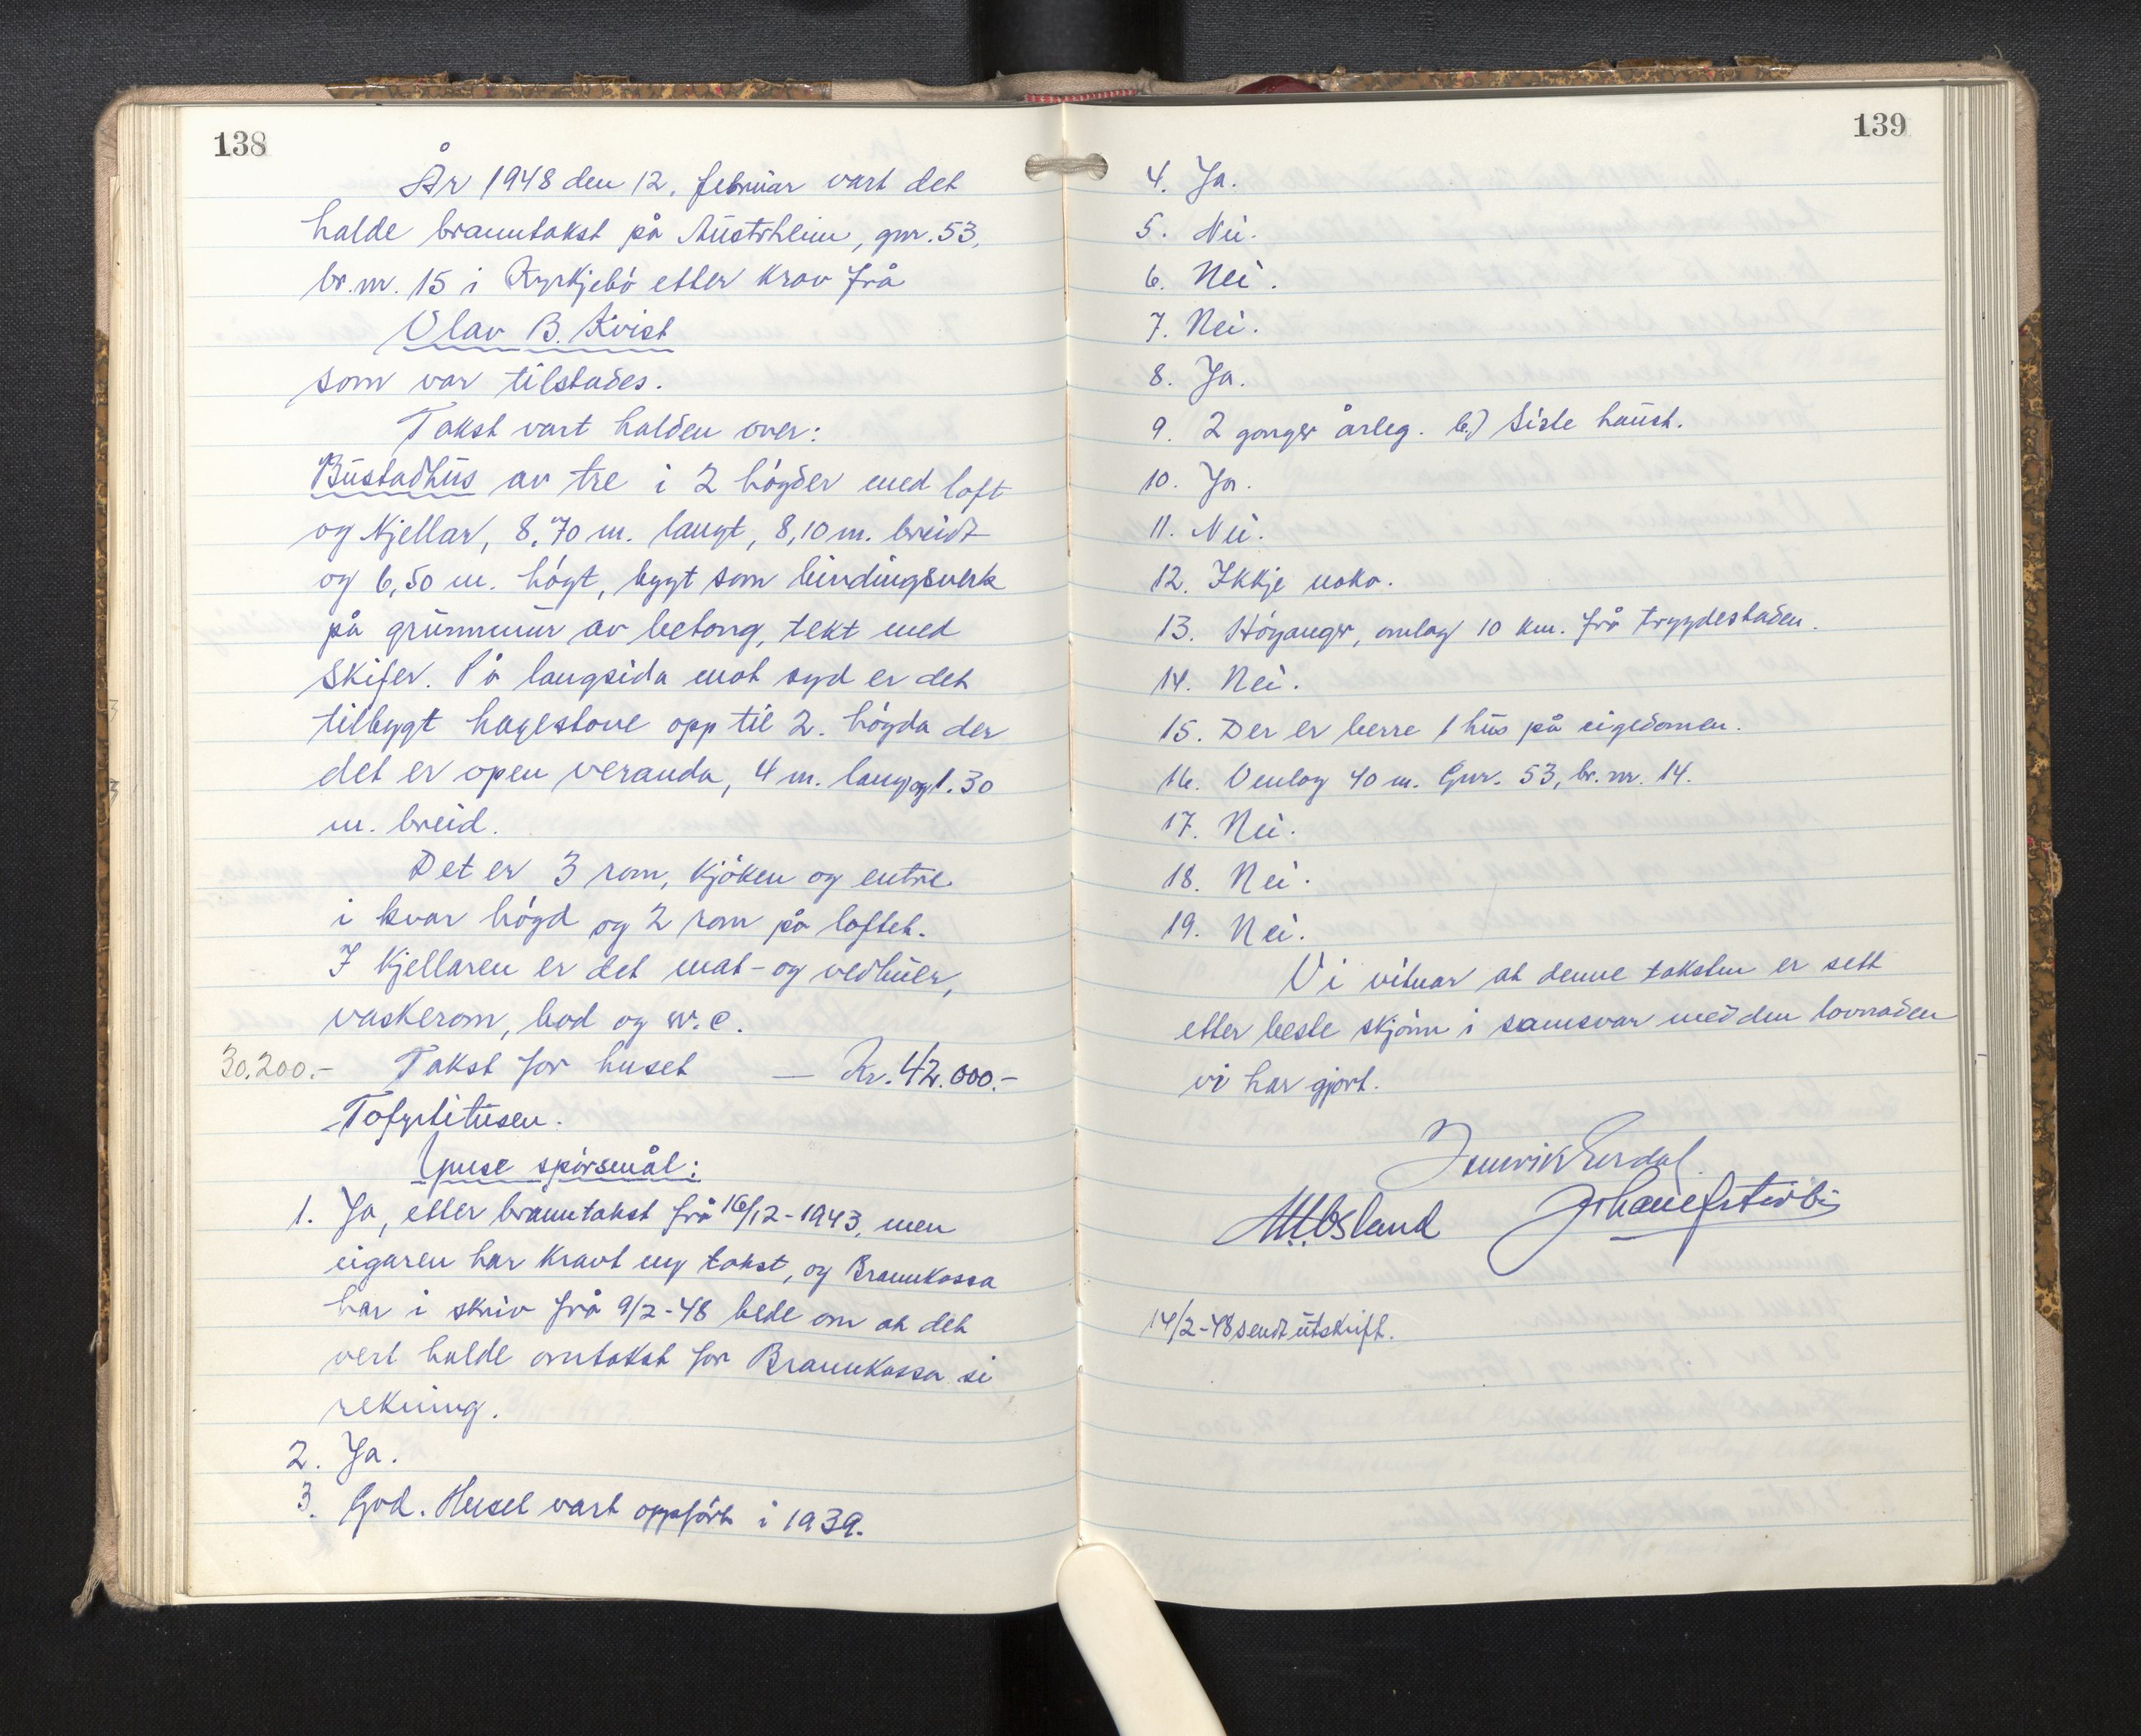 138
År 1948 den 12. februar vart det
halde branntakst på Austrheim, gnr. 53,
br.nr. 15 i Kyrkjebö etter krav frå
Olav B. Kvist
som var tilstades.
Takst vart halden over:
Bustadhus av tre i 2 högder med loft
og kjellar, 8,70 m. langt, 8,10 m. breidt
og 6,50 m. högt, bygt som bindingsverk
på grunnmur av betong, tekt med
skifer. På langsida mot syd er det
tilbygt hagestove opp til 2. högda der
det er open veranda, 4 m. lang og 1.30
m. breid.
Det er 3 rom, kjöken og entre
i kvar högd og 2 rom på loftet.
I kjellaren er det mat- og vedbuer,
vaskerom, bod og w.c.
30.200.- Takst for huset — Kr. 42.000.-
Toførtitusen.
Ymse spörsmål:
1. Ja, etter branntakst frå 16/12-1943, men
eigaren har kravt ny takst, og Brannkassa
har i skriv frå 9/2-48 bede om at det
vert halde omtakst for Brannkassa si
rekning.
2. Ja.
3. God. Huset vart oppfört i 1939.
139
4. Ja.
5. Nei.
6. Nei.
7. Nei.
8. Ja.
9. 2 gonger årleg. b.) Siste haust.
10. Ja.
11. Nei.
12. Ikkje noko.
13. Höyanger, omlag 10 km. frå trygdestaden.
14. Nei.
15. Der er berre 1 hus på eigedomen.
16. Omlag 40 m. Gnr. 53, br. nr. 14.
17. Nei.
18. Nei.
19. Nei.
Vi vitnar at denne taksten er sett
etter beste skjönn i samsvar med den lovnaden
vi har gjort.
14/2-48 sendt utskrift.